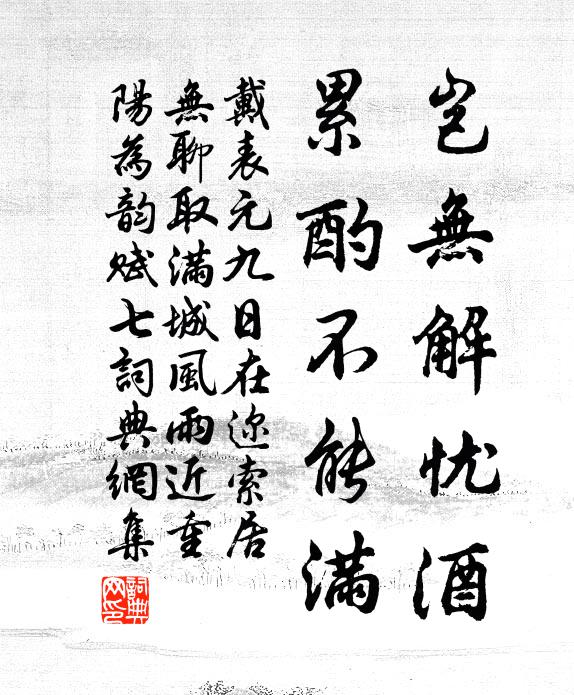 岂無解忧酒
累酌不能满
戴表元九日在迩索居
無聊取满城風雨近重
陽為韵赋七詞典網集
詞典